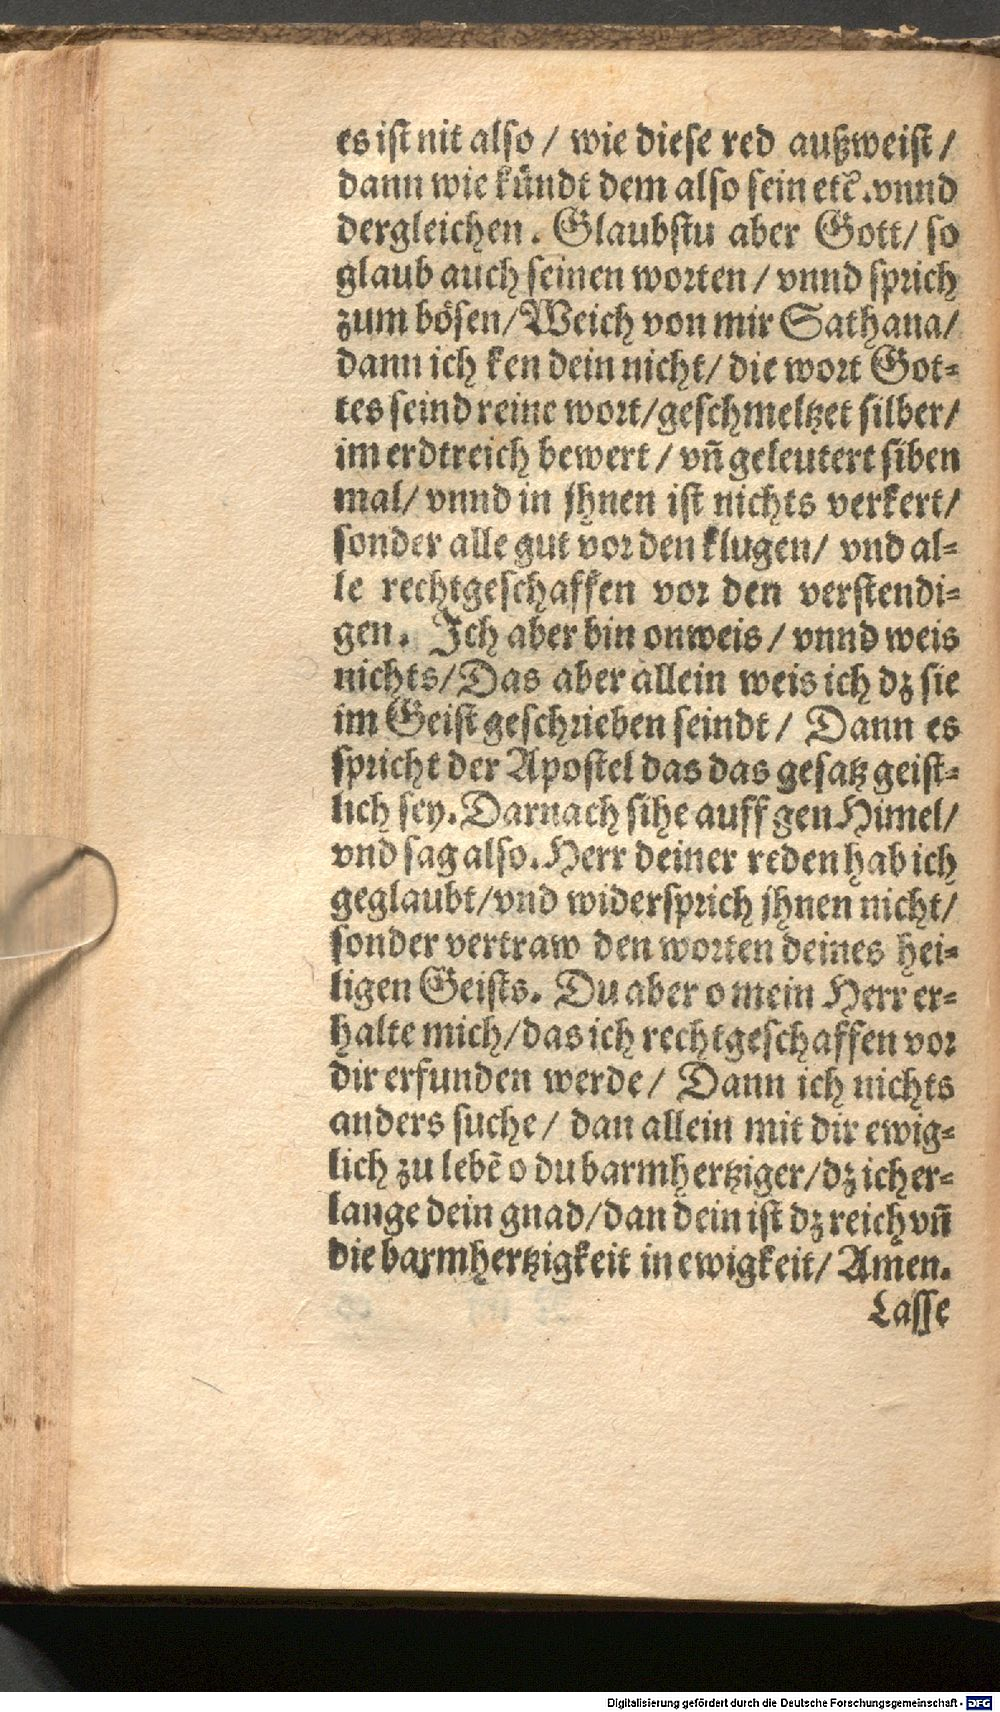 es ist nit also / wie diese red außweist /
dann wie kündt dem also sein etc̃. vnnd
dergleichen. Glaubstu aber Gott / so
glaub auch seinen worten / vnnd sprich
zum bösen / Weich von mir Sathana /
dann ich ken dein nicht / die wort Got=
tes seind reine wort / geschmeltzet silber /
im erdtreich bewert / vñ geleutert siben
mal / vnnd in jhnen ist nichts verkert /
sonder alle gut vor den klugen / vnd al=
le rechtgeschaffen vor den verstendi=
gen. Ich aber bin onweis / vnnd weis
nichts / Das aber allein weis ich dz sie
im Geist geschrieben seindt / Dann es
spricht der Apostel das das gesatz geist=
lich sey. Darnach sihe auff gen Himel /
vnd sag also. Herr deiner reden hab ich
geglaubt / vnd widersprich jhnen nicht /
sonder vertraw den worten deines hei=
ligen Geists. Du aber o mein Herr er=
halte mich / das ich rechtgeschaffen vor
dir erfunden werde / Dann ich nichts
anders suche / dan allein mit dir ewig=
lich zu lebẽ o du barmhertziger / dz ich er=
lange dein gnad / dan dein ist dz reich vñ
die barmhertzigkeit in ewigkeit / Amen.
Lasse
Digitalisierung gefördert durch die Deutsche Forschungsgemeinschaft - DFG